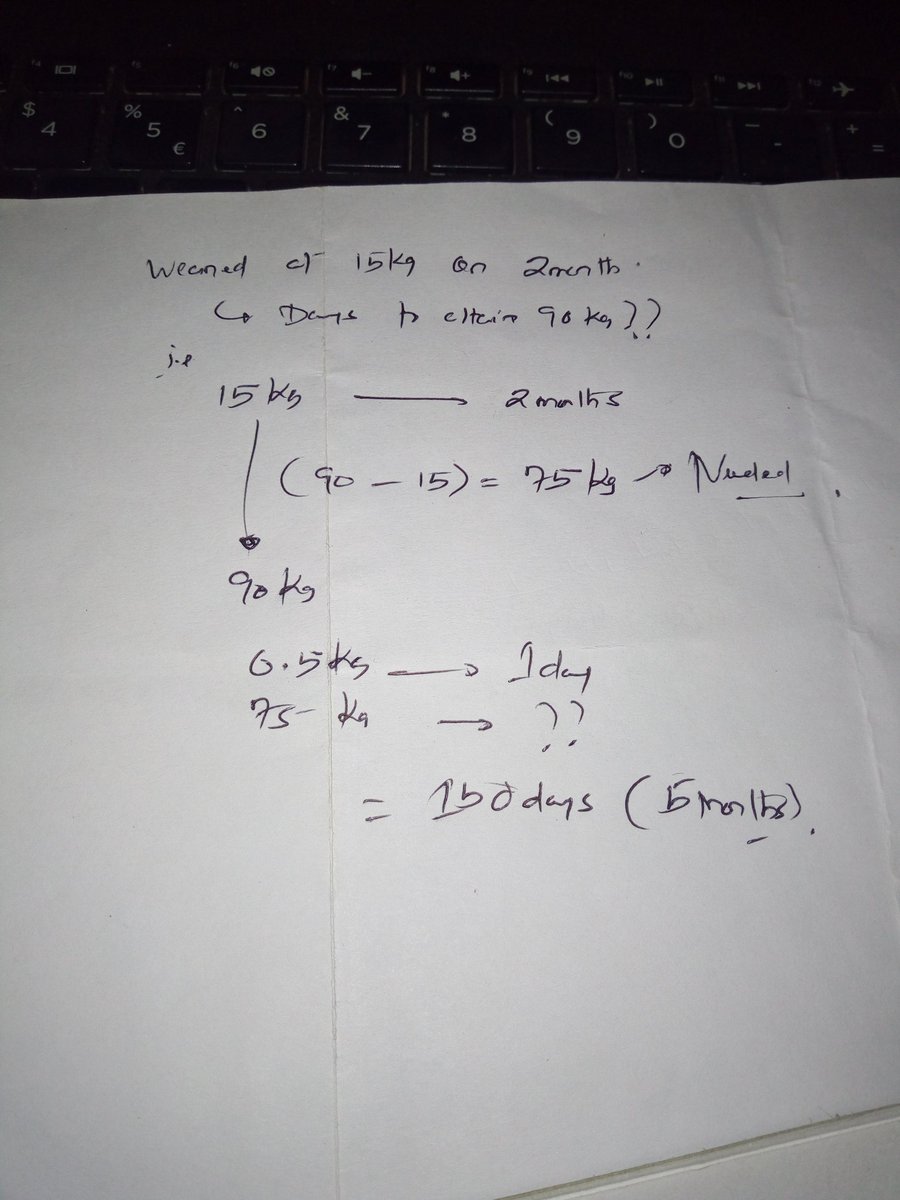 f4 f5 f6 f7 f8 f9 f10 f11 f12
$ 4 % 5 € ^ 6 & 7 * 8 ( 9 ) 0 - + =
Weaned at 15kg on 2month.
↳ Days to attain 90 kg??
i.e
15 kg → 2 months
(90 - 15) = 75 kg → Needed.
90 kg
0.5 kg → 1 day
75 kg → ??
= 150 days (5 months).